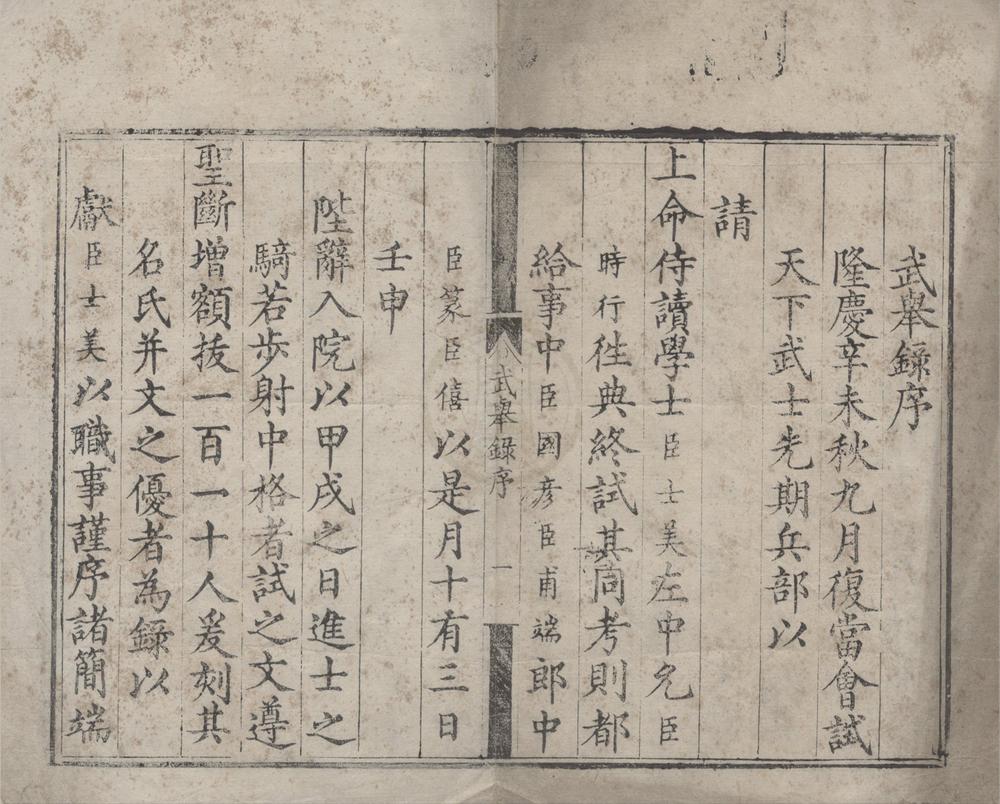 武舉錄序
隆慶辛未秋九月復當會試
天下武士先期兵部以
請
上命侍讀學士臣士美左中允臣
時行徃典終試其同考則都
給事中臣國彥臣甫端郎中
武舉錄序 一
臣篆臣僖以是月十有三日
壬申
陛辭入院以甲戌之日進士之
騎若步射中格者試之文遵
聖斷增額拔一百一十人爰刻其
名氏并文之優者為錄以
獻臣士美以職事謹序諸簡端